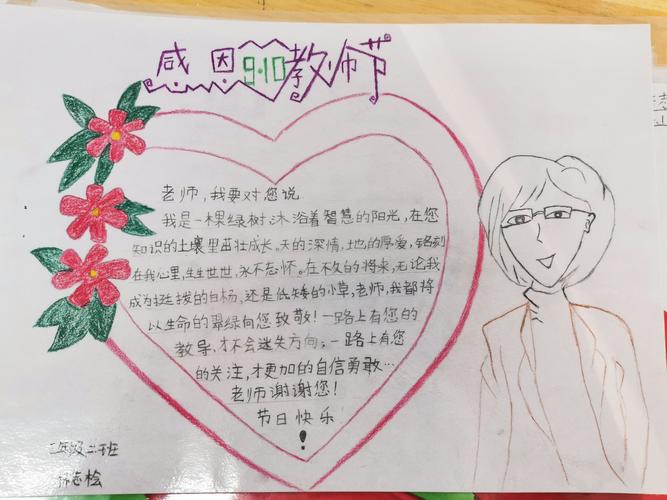 感恩9·10教师节
老师，我要对您说
我是一棵绿树，沐浴着智慧的阳光，在您
知识的土壤里茁壮成长。天的深情，土地的厚爱，铭刻
在我心里，生生世世，永不忘怀。在不久的将来，无论我
成为挺拔的白杨，还是低矮的小草，老师，我都将
以生命的翠绿向您致敬！一路上有您的
教导，才不会迷失方向，一路上有您
的关注，才更加的自信勇敢…
老师谢谢您！
节日快乐
！
二年级二班